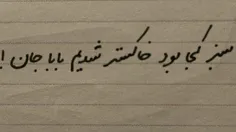 سبز کجا بود خاکستر شدیم بابا جان !